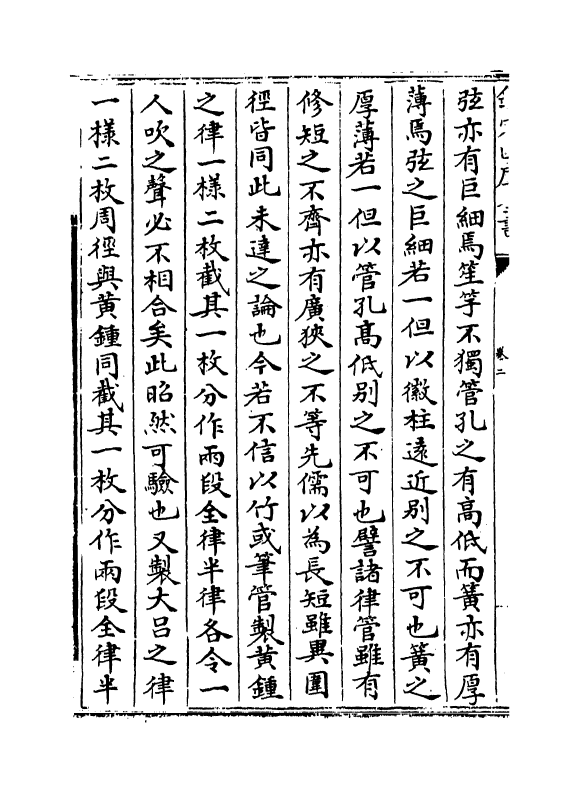 弦亦有巨細焉笙竽不獨管孔之有髙低而簧亦有厚
薄焉弦之巨細若一但以徽柱逺近别之不可也簧之
厚薄若一但以管孔髙低别之不可也譬諸律管雖有
修短之不齊亦有廣狹之不等先儒以為長短雖異圍
徑皆同此未達之論也今若不信以竹或筆管製黄鍾
之律一様二枚截其一枚分作兩段全律半律各令一
人吹之聲必不相合矣此昭然可驗也又製大吕之律
一様二枚周徑與黄鍾同截其一枚分作兩段全律半
卷二